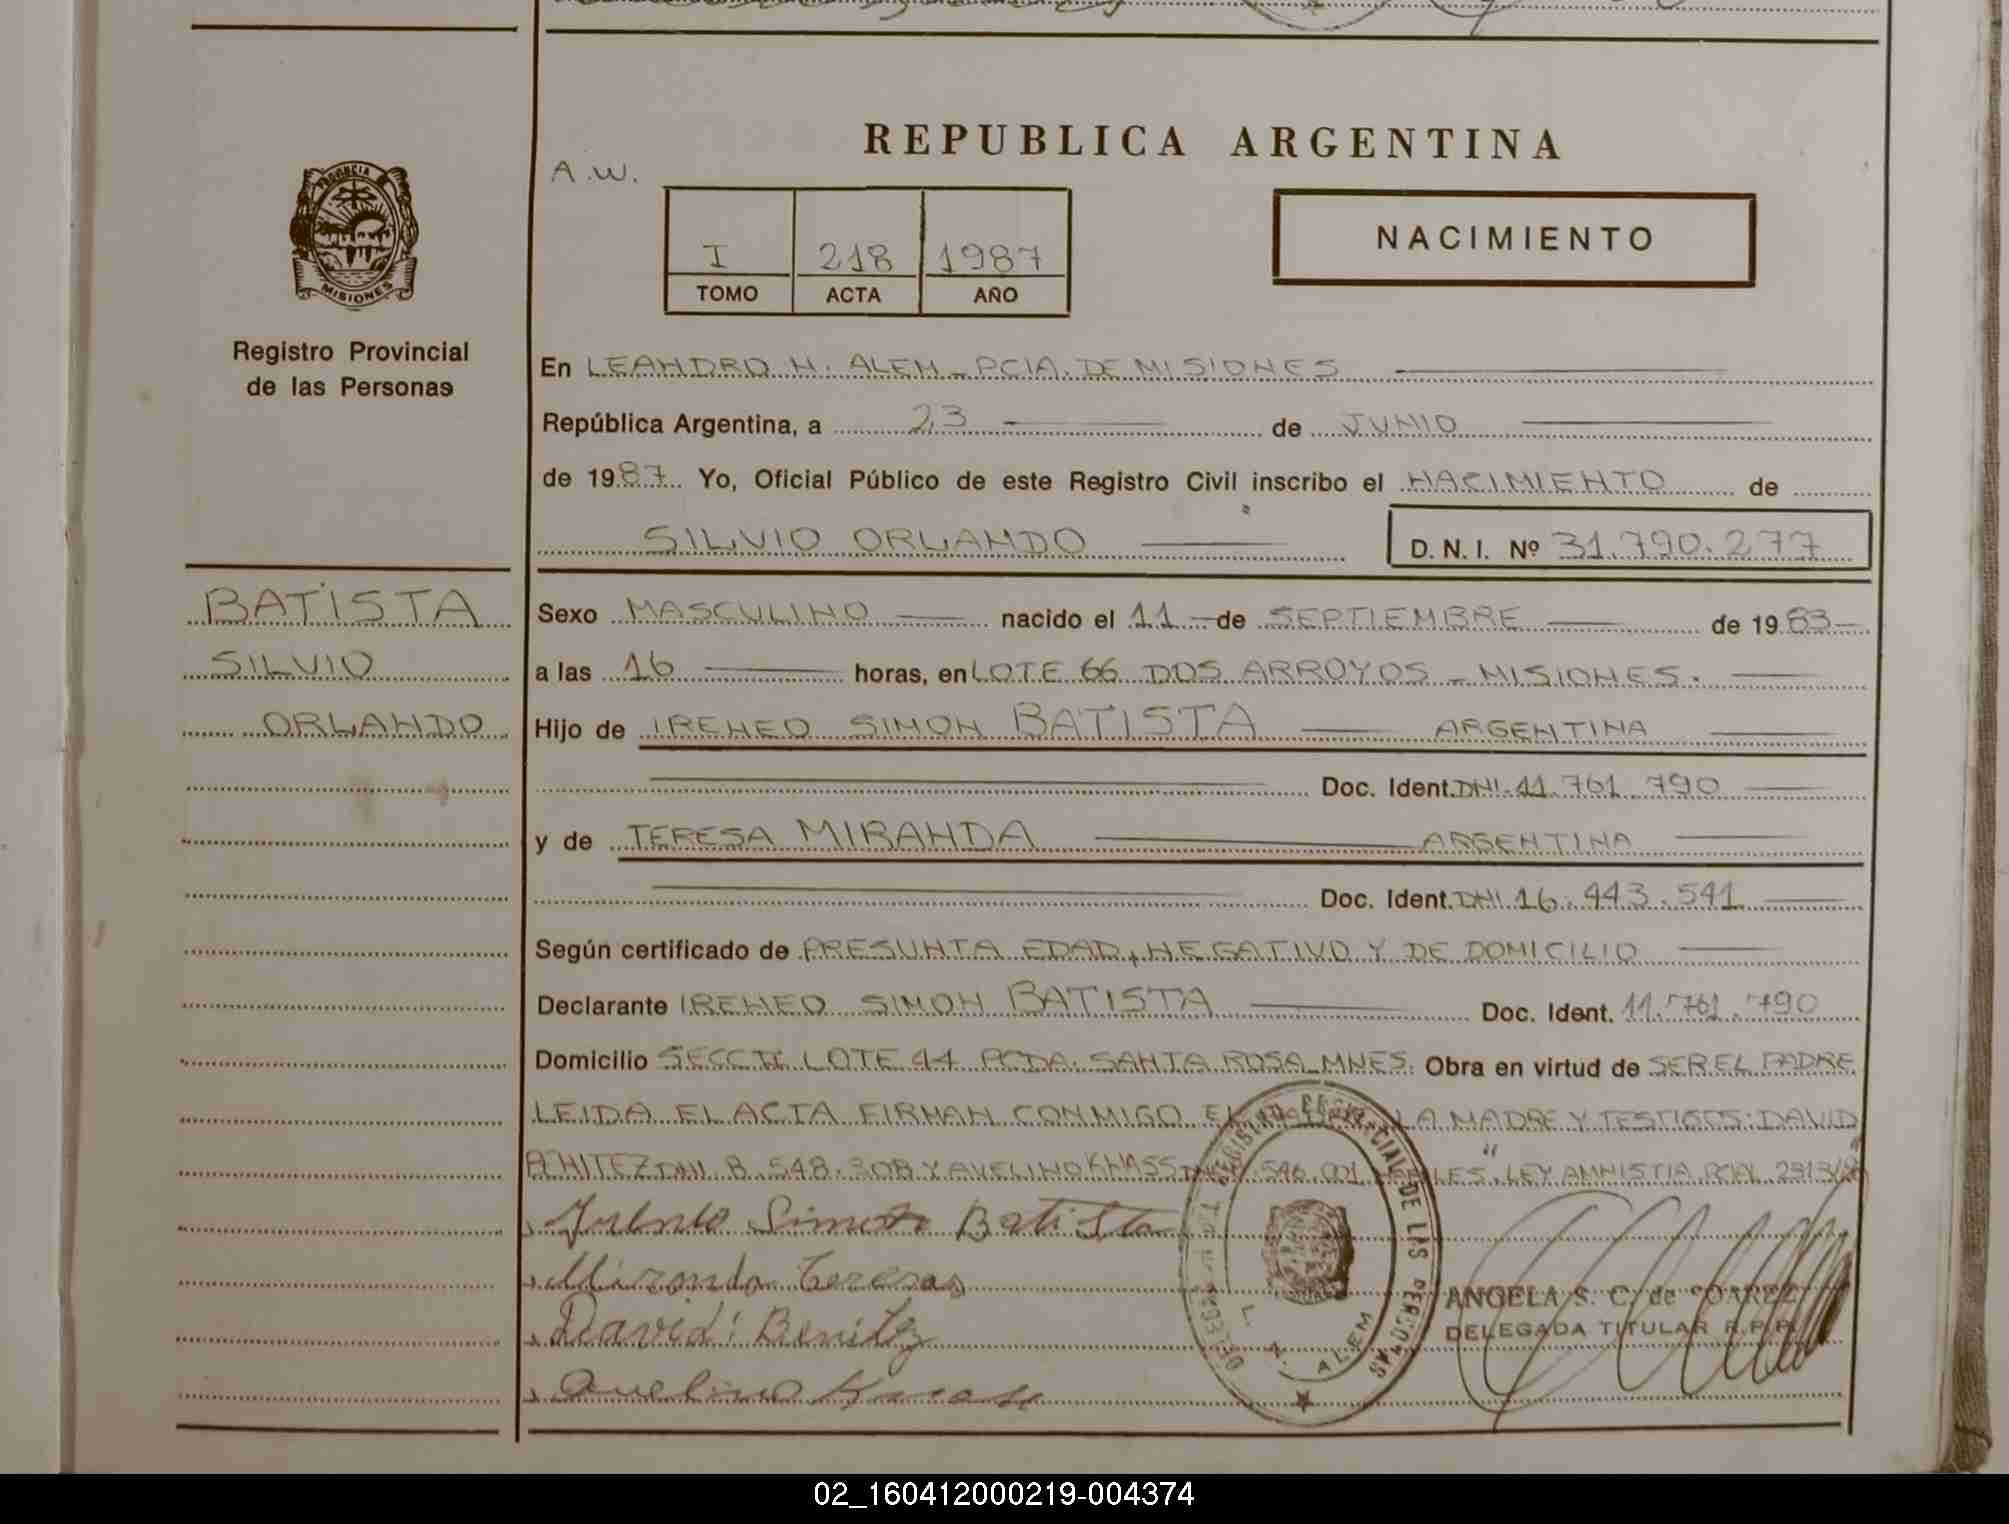 REPUBLICA ARGENTINA
A.W.
NACIMIENTO
I 218 1987
TOMO ACTA AÑO
PROVINCIA
MISIONES
Registro Provincial
de las Personas
En LEANDRO N. ALEM - PCIA. DE MISIONES
República Argentina, a 23 de JUNIO
de 1987 Yo, Oficial Público de este Registro Civil inscribo el NACIMIENTO de
SILVIO ORLANDO D. N. I. Nº 31.790.277
BATISTA
SILVIO
ORLANDO
Sexo MASCULINO nacido el 11 de SEPTIEMBRE de 1983
a las 16 horas, en LOTE 66 DOS ARROYOS - MISIONES.
Hijo de IRENEO SIMON BATISTA ARGENTINA
Doc. Ident. DNI. 11.761.790
y de TERESA MIRANDA ARGENTINA
Doc. Ident. DNI 16.443.541
Según certificado de PRESUNTA EDAD, NEGATIVO Y DE DOMICILIO
Declarante IRENEO SIMON BATISTA Doc. Ident. 11.761.790
Domicilio SECC II LOTE 44 PCDA. SANTA ROSA MNES. Obra en virtud de SER EL PADRE
LEIDA EL ACTA FIRMAN CONMIGO EL LA MADRE Y TESTIGOS: DAVID
DNI. 8.548.308 Y AVELINO KNASS 546.001 LEY AMNISTIA PCIAL
Simon Batista
Miranda Teresa
David Benitez
Avelino
REGISTRO PROVINCIAL DE LAS PERSONAS
L. N. ALEM
ANGELA S. C. de
DELEGADA TITULAR R.P.P.
02_160412000219-004374